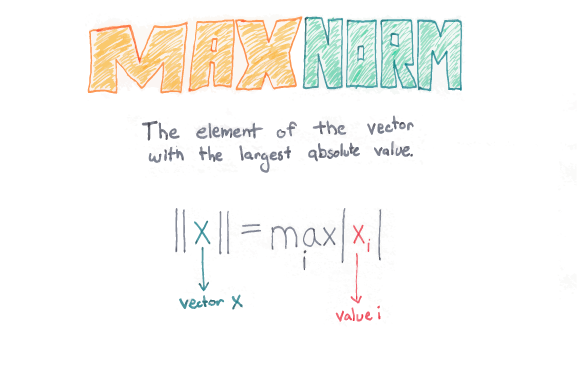 MAX NORM
The element of the vector
with the largest absolute value.
||x|| = max|xᵢ|
i
vector x
value i